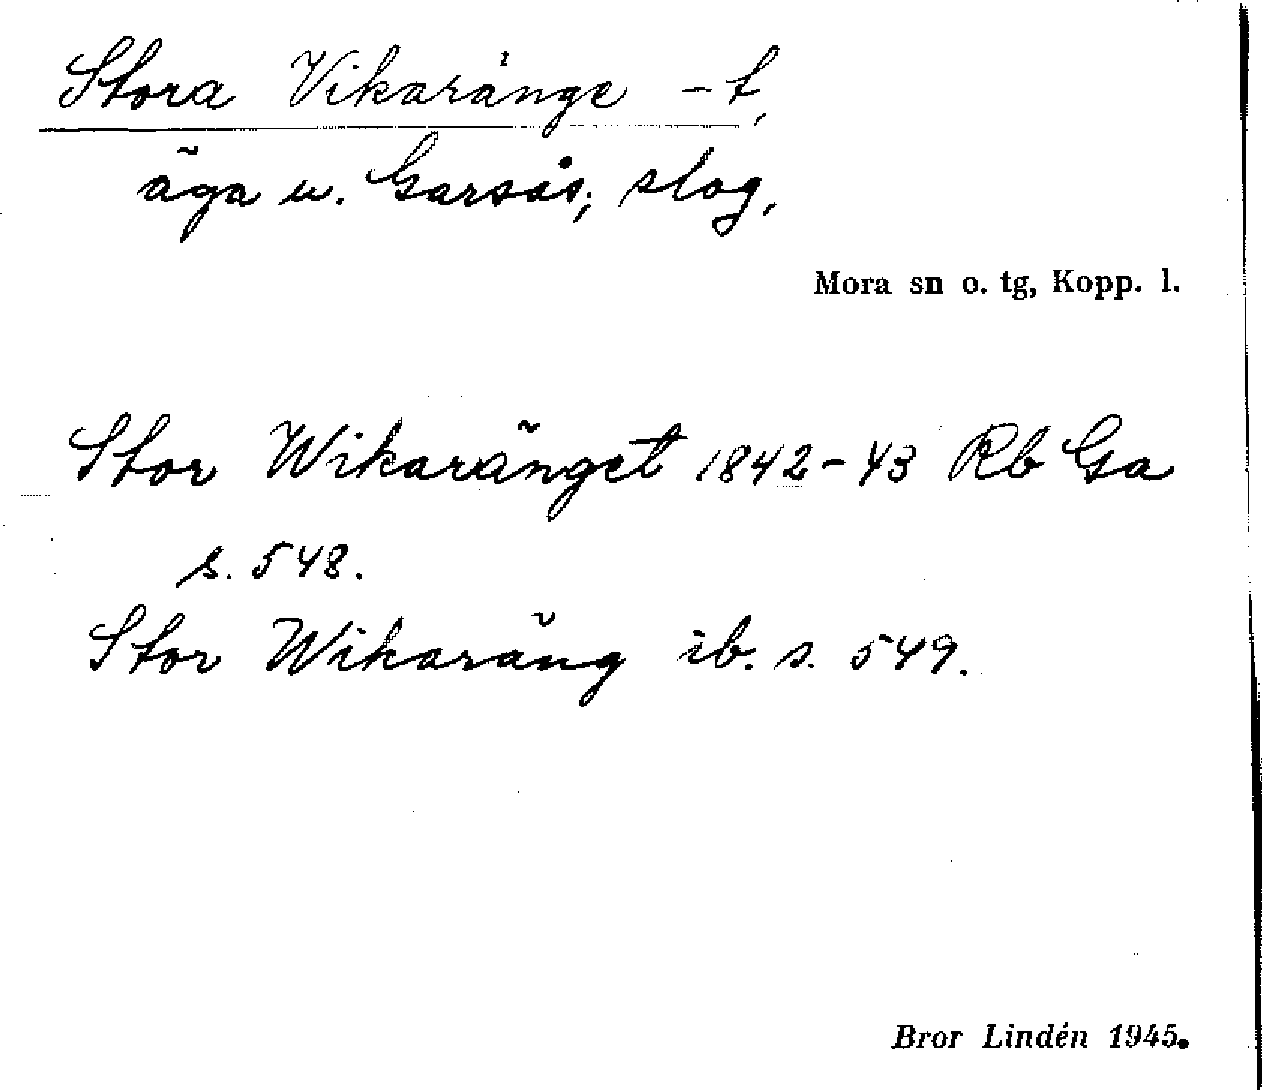 Stora Vikaränge -t,
äga u. Garsås; slog,
Mora sn o. tg, Kopp. l.
Stor Wikaränget 1842-43 Rb Ga
s. 548.
Stor Wikaräng ib. s. 549.
Bror Lindén 1945.